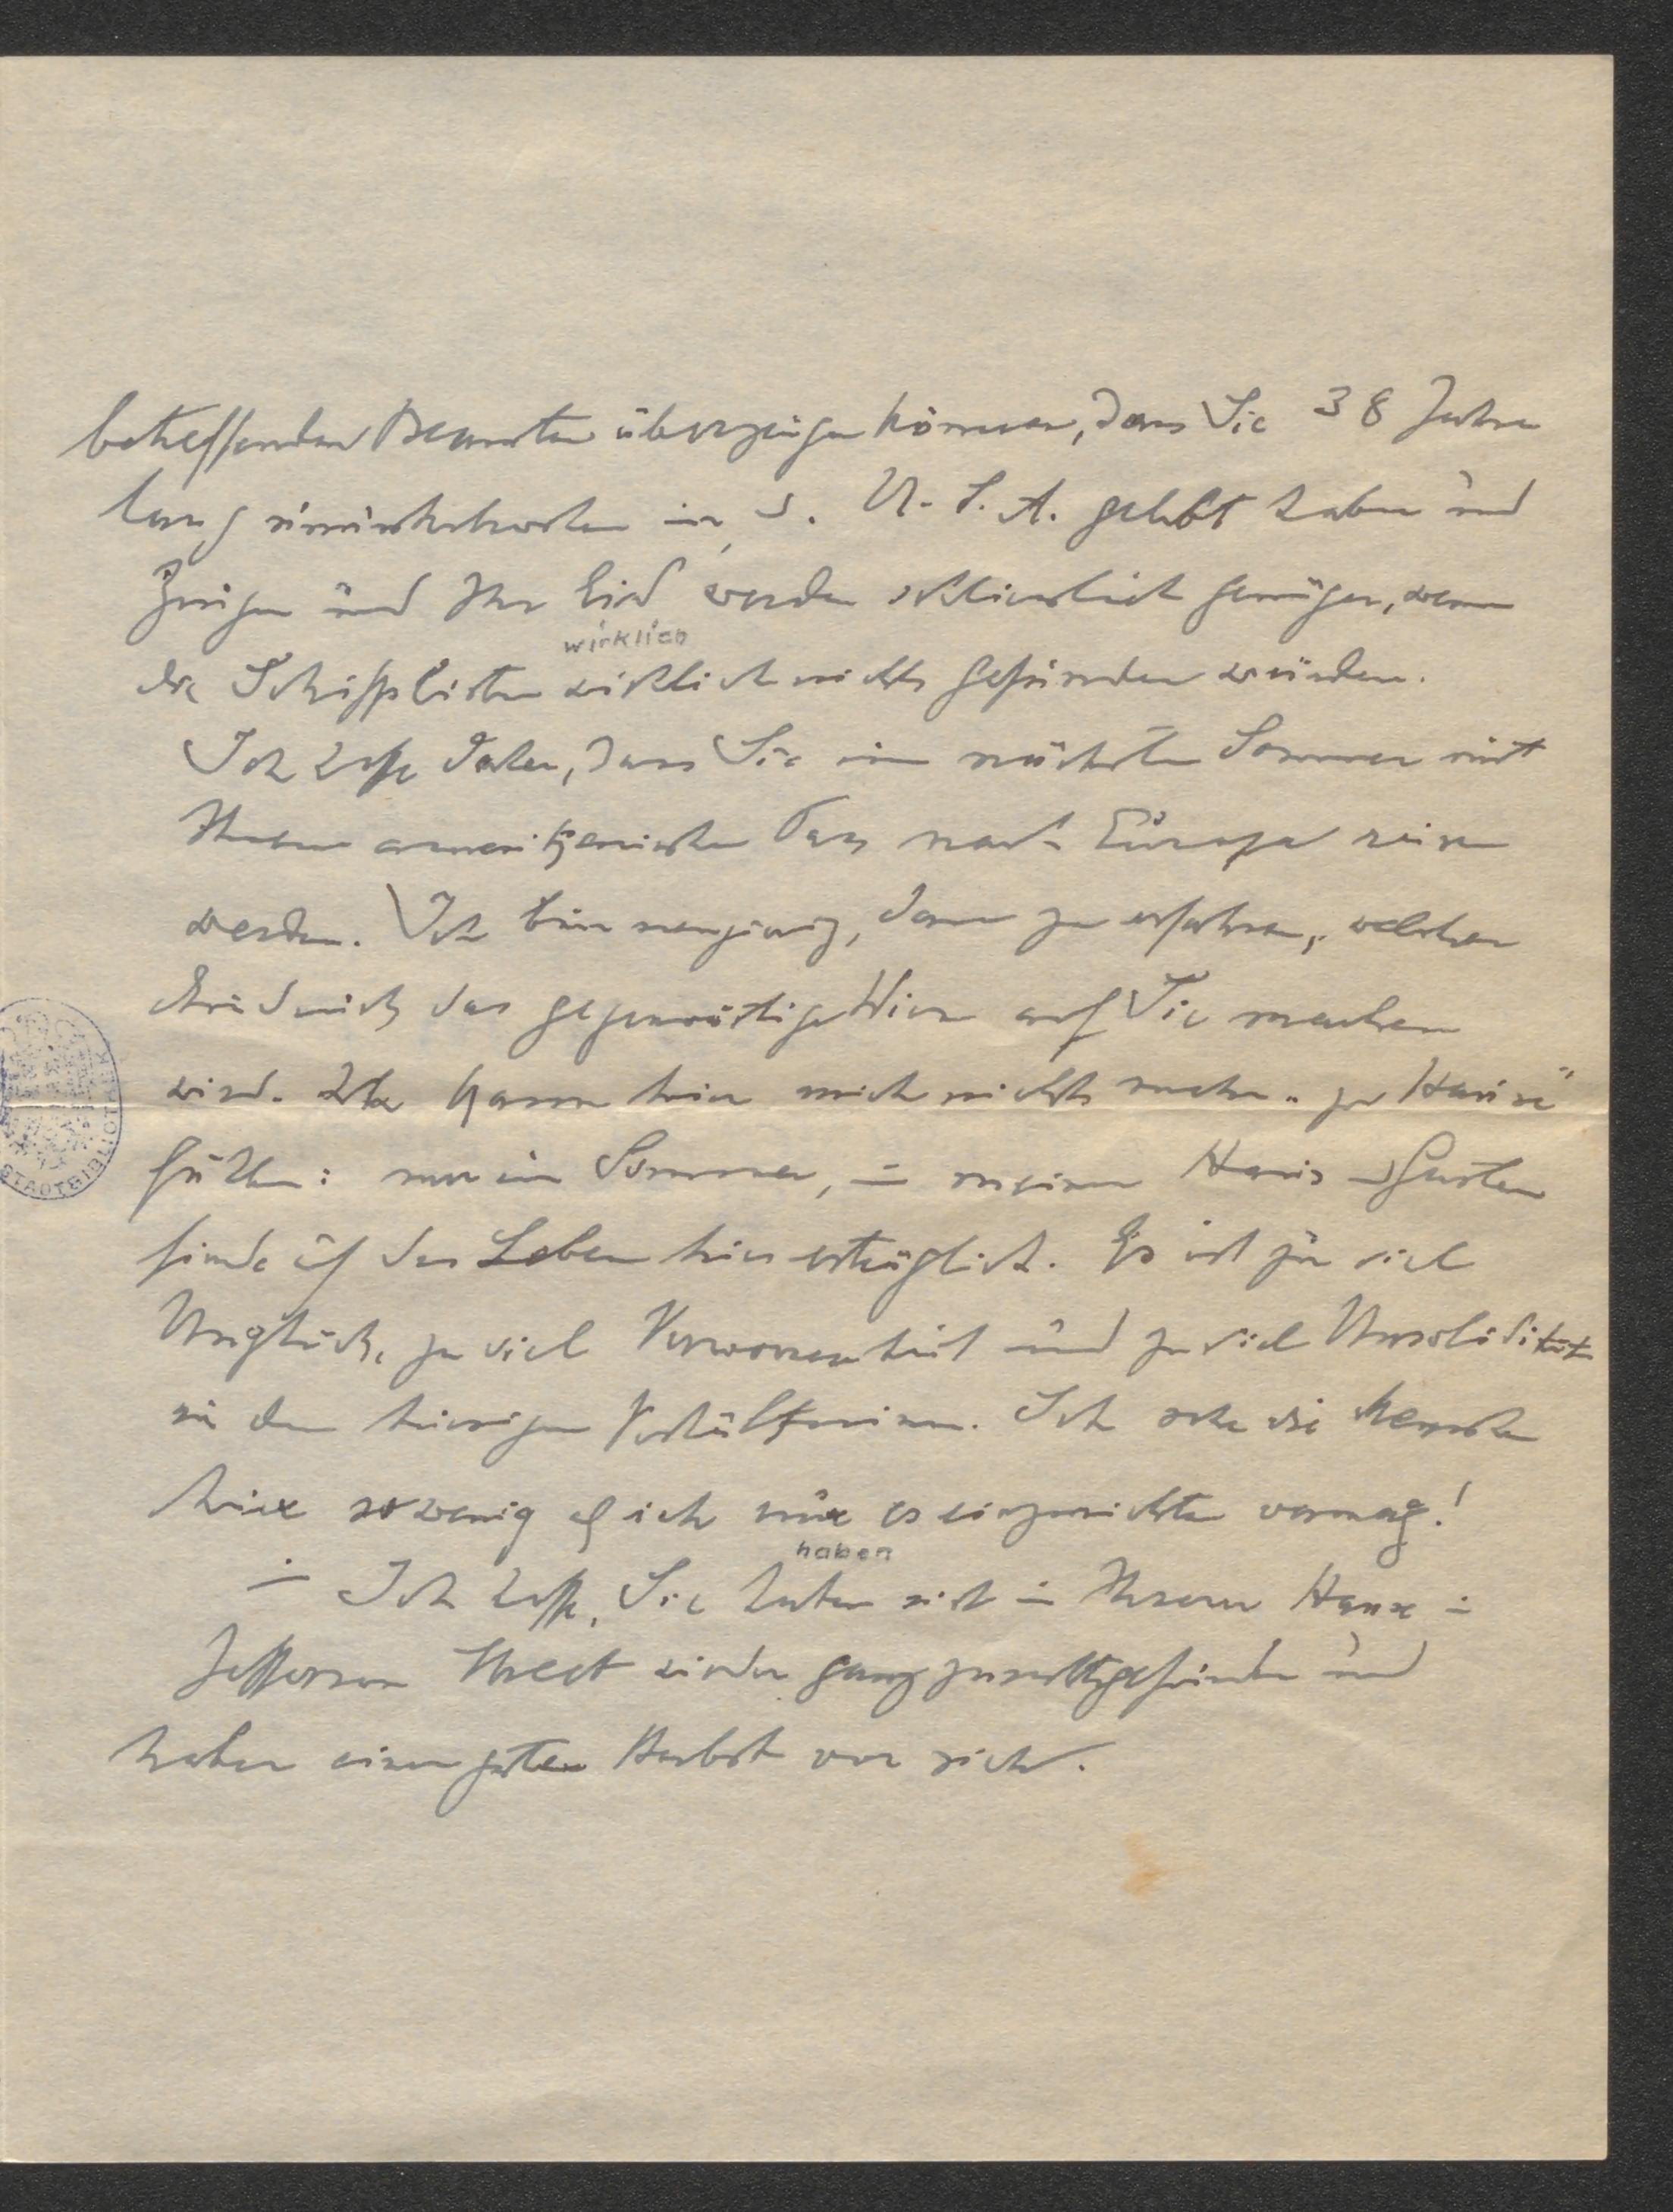 betreffenden Beamten überzeugen können, dass Sie 38 Jahre
lang ununterbrochen in d. U.S.A. gelebt haben und
Zeugen und Ihr Eid werden schliesslich genügen, wenn
wirklich
die Schiffslisten wirklich nicht gefunden würden.
Ich hoffe daher, dass Sie im nächsten Sommer mit
Ihrem amerikanischen Pass nach Europa reisen
werden. Ich bin neugierig, dann zu erfahren, welchen
Eindruck das gegenwärtige Wien auf Sie machen
wird. Ich kann hier mich nicht mehr „zu Hause"
fühlen: nur im Sommer, in meinem Haus u Garten
finde ich das Leben hier erträglich. Es ist zu viel
Unglück, zu viel Verworrenheit und zu viel Unsolidität
in den hiesigen Verhältnissen. Ich sehe die Menschen
hier so wenig als ich nur es einzurichten vermag!
haben
– Ich hoffe, Sie haben sich in Ihrem Hause in
Jefferson Street wieder ganz zurechtgefunden und
haben einen guten Herbst vor sich.
STADTBIBLIOTHEK